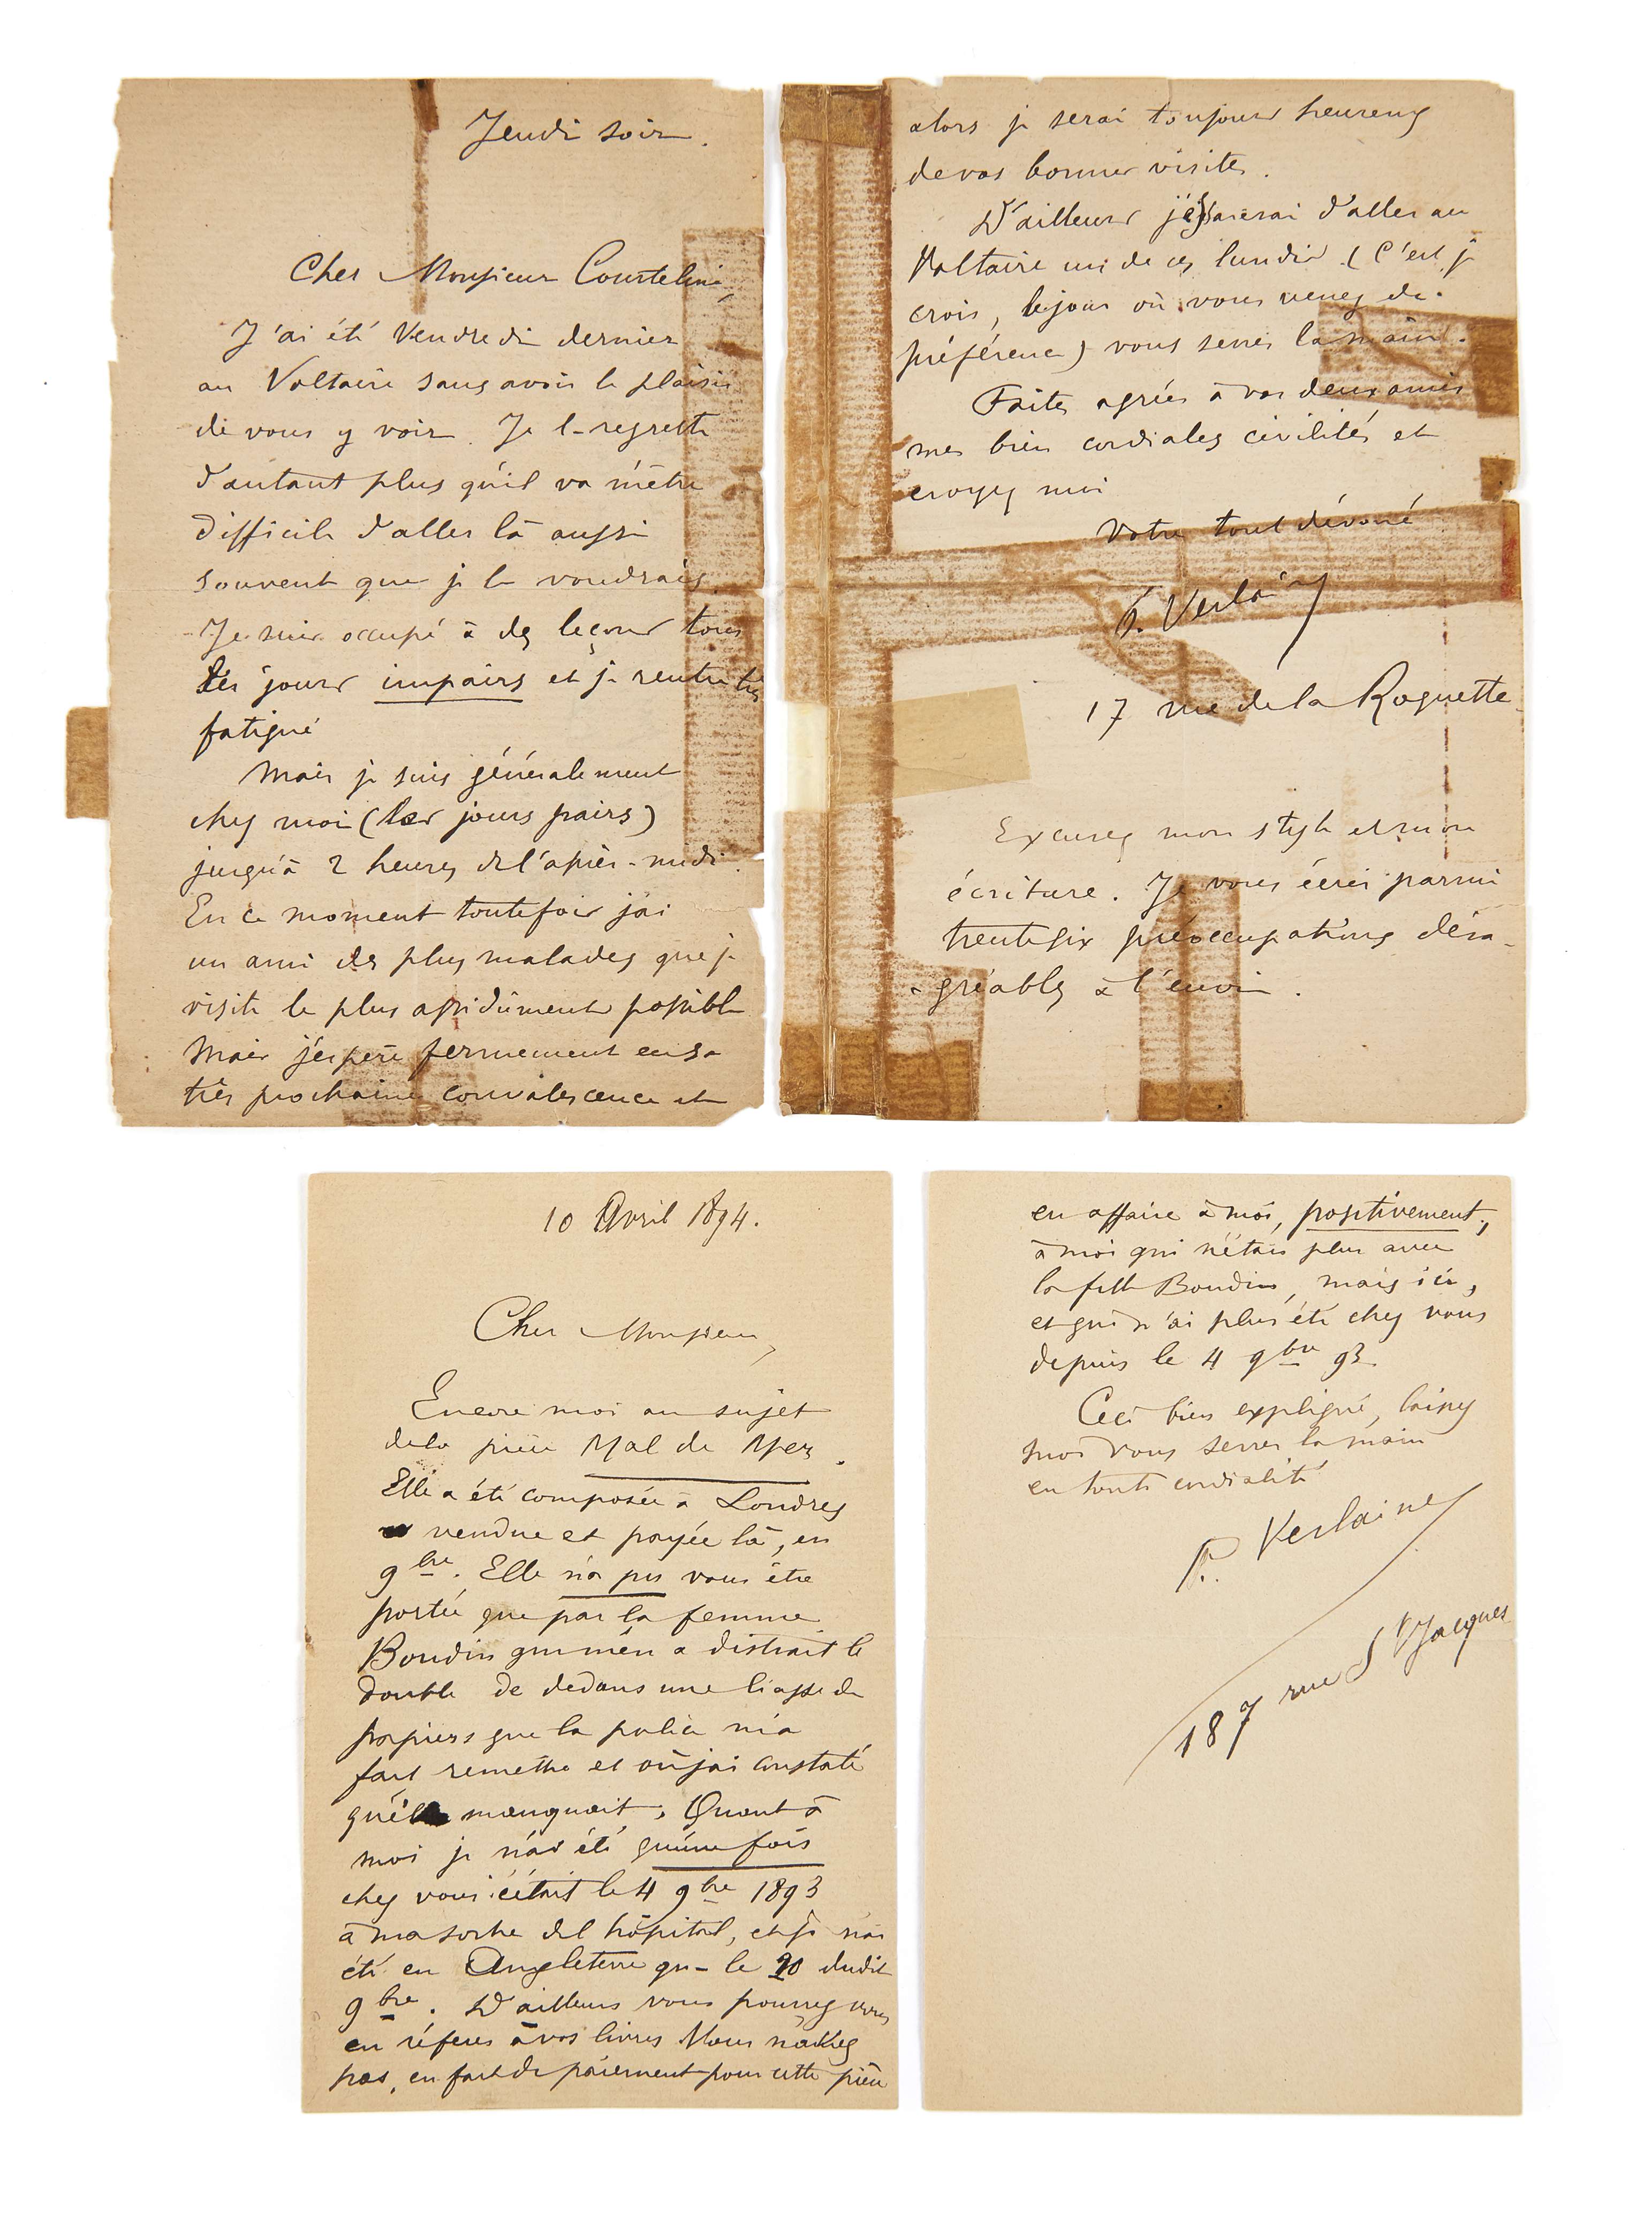 Jeudi soir.
Cher Monsieur Courteline,
J'ai été Vendredi dernier
au Voltaire sans avoir le plaisir
de vous y voir. Je le regrette
d'autant plus qu'il va m'être
difficile d'aller là aussi
souvent que je le voudrais.
Je suis occupé à des leçons tous
les jours impairs et je rentre très
fatigué
Mais je suis généralement
chez moi (les jours pairs)
jusqu'à 2 heures de l'après-midi.
En ce moment toutefois j'ai
un ami des plus malades que je
visite le plus assidûment possible
Mais j'espère fermement en sa
très prochaine convalescence et
alors je serai toujours heureux
de vos bonnes visites.
D'ailleurs j'essaierai d'aller au
Voltaire un de ces lundis (C'est je
crois, le jour où vous venez de
préférence) vous serrer la main.
Faites agréer à vos deux amis
mes bien cordiales civilités et
croyez moi
Votre tout dévoué
P. Verlaine
17 rue de la Roquette
Excusez mon style et mon
écriture. Je vous écris parmi
trente six préoccupations désa-
gréables à l'envi.
10 Avril 1894.
Cher Monsieur,
Encore moi au sujet
de la pièce Mal de Mer.
Elle a été composée à Londres
vendue et payée là, en
9bre. Elle n'a pu vous être
portée que par la femme
Boudin qui m'en a distrait le
double de dedans une liasse de
papiers que la police m'a
fait remettre et où j'ai constaté
qu'elle manquait. Quant à
moi je n'ai été qu'une fois
chez vous c'était le 4 9bre 1893
à ma sortie de l'hôpital, et je n'ai
été en Angleterre que le 20 dudit
9bre. D'ailleurs vous pourrez vous
en référer à vos livres Vous n'avez
pas, en fait de paiement pour cette pièce
eu affaire à moi, positivement,
à moi qui n'étais plus avec
la fille Boudin, mais ici,
et qui n'ai plus été chez vous
depuis le 4 9bre 93.
Ceci bien expliqué, laissez
moi vous serrer la main
en toute cordialité
P. Verlaine
187 rue St Jacques